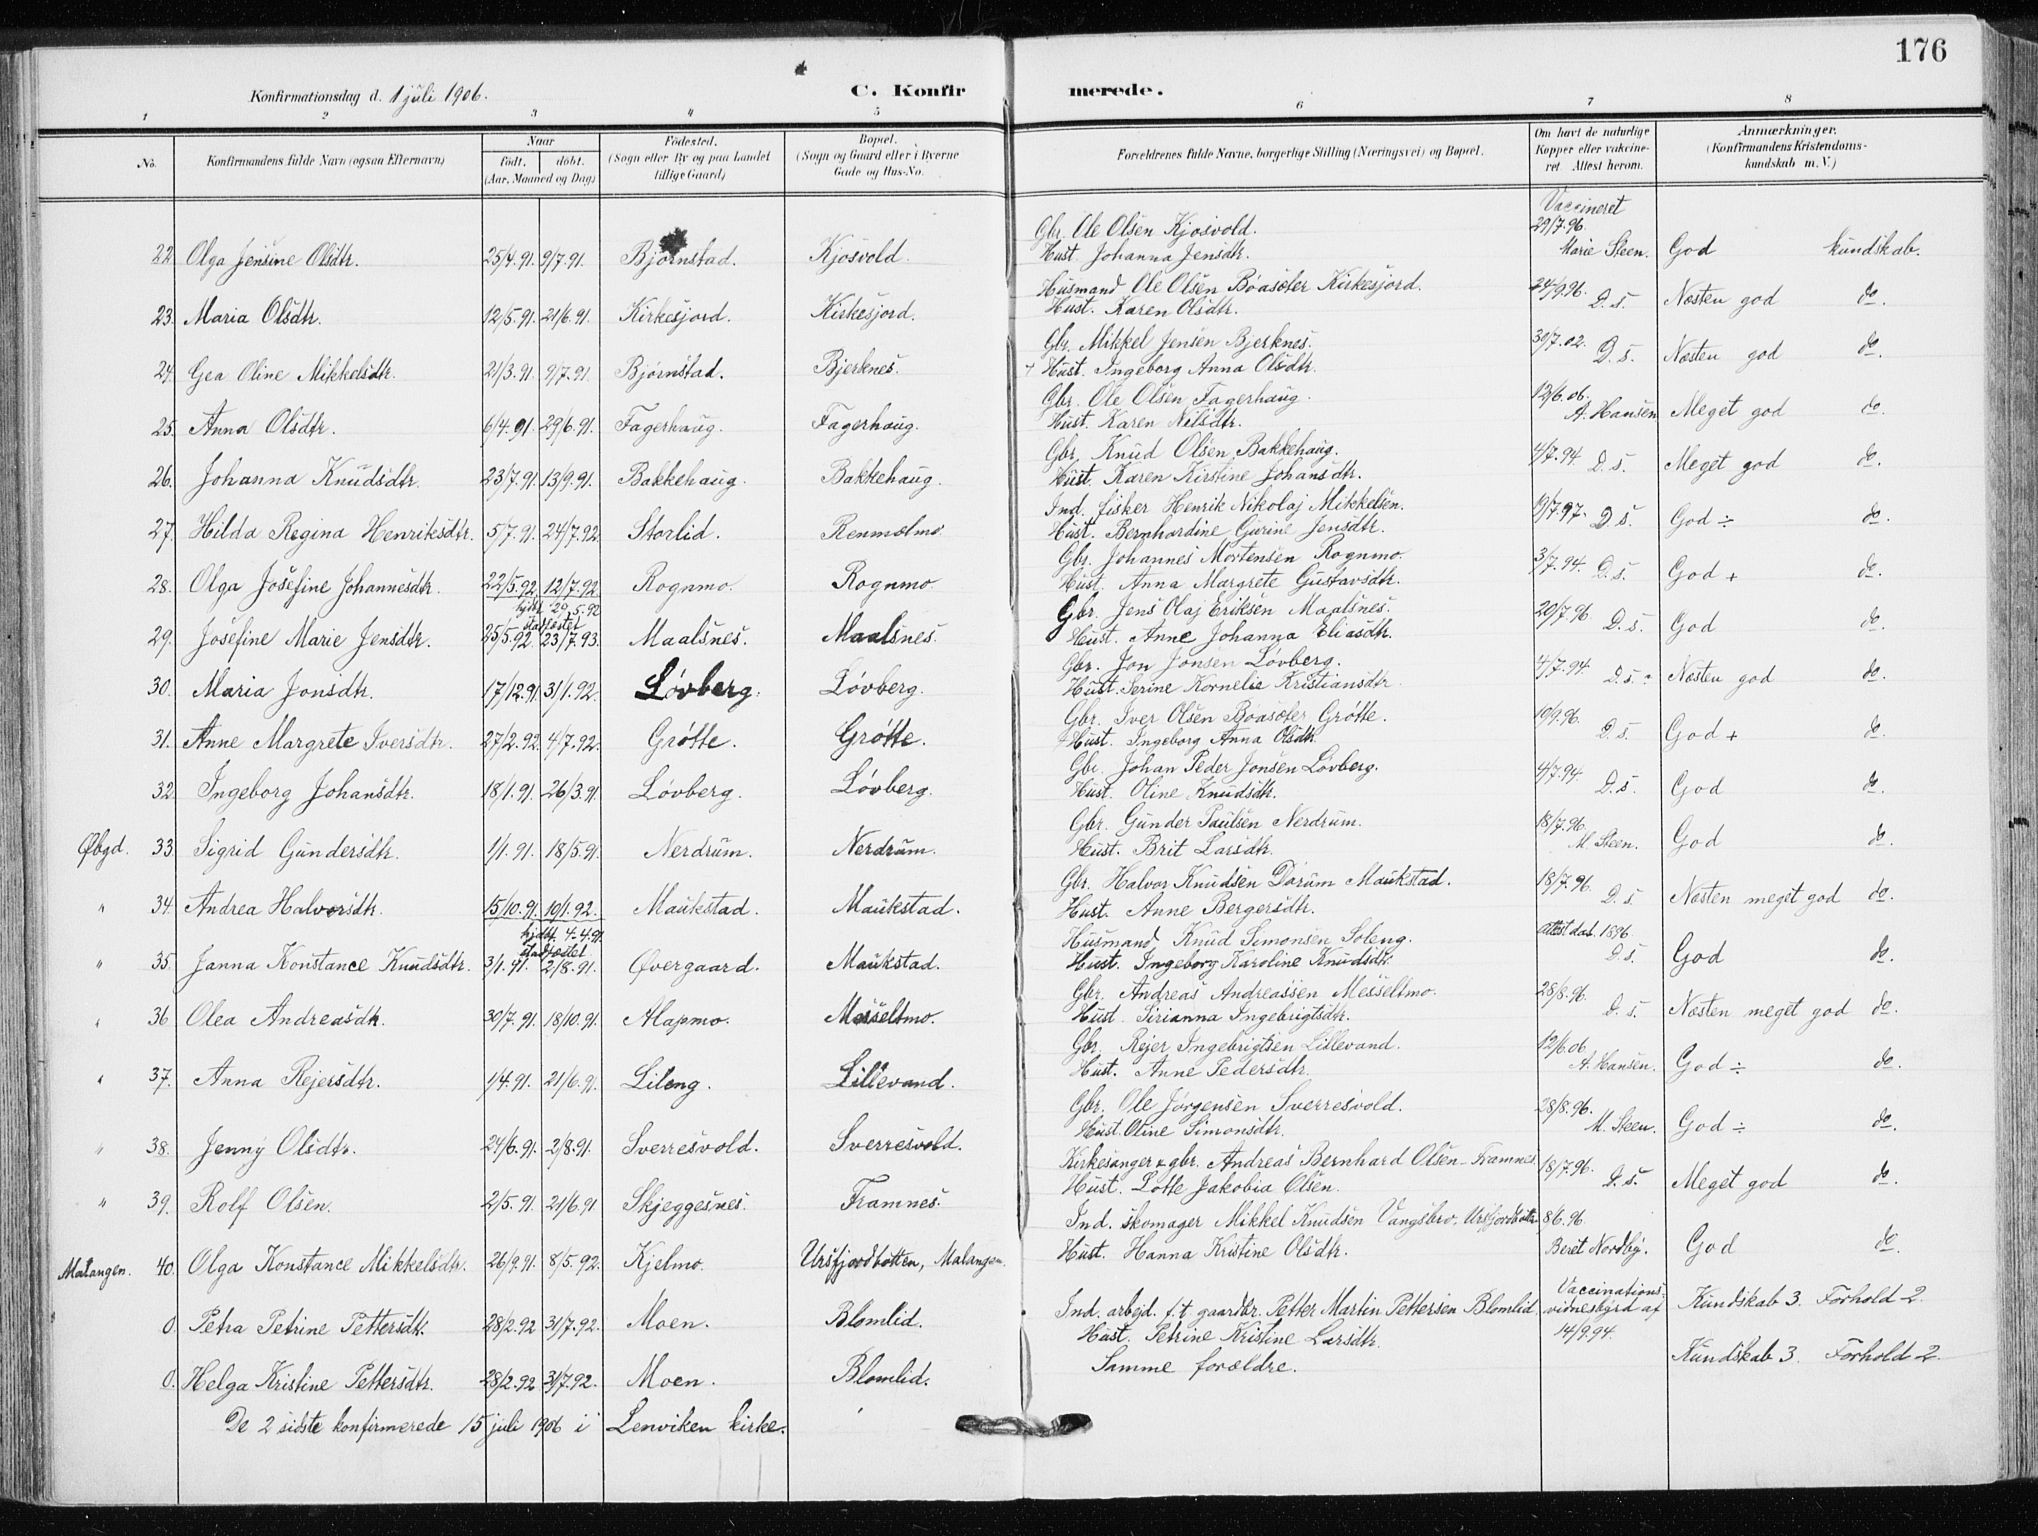 176
Konfirmationsdag d. 1 juli 1906. C. Konfirmerede.
1 2 3 4 5 6 7 8
No. Konfirmandens fulde Navn (ogsaa Efternavn) Naar født. døbt. (Aar, Maaned og Dag) Fødested. (Sogn eller By og paa Landet tillige Gaard) Bopæl. (Sogn og Gaard eller i Byerne Gade og Hus-No. Forældrenes fulde Navne, borgerlige Stilling (Næringsvei) og Bopæl. Om havt de naturlige Kopper eller vakcineret. Attest herom. Anmærkninger. (Konfirmandens Kristendomskundskab m. V.)
Vaccineret
Gbr. Ole Olsen Kjosvold. 29/7.96.
22. Olga Jensine Olsdtr. 25/4.91. 9/7.91. Bjørnstad. Kjosvold. Hust. Johanna Jensdtr. Marie Steen. God kundskab.
Husmand Ole Olsen Bøasæter Kirkesjord. 24/9.96.
23. Maria Olsdtr. 12/5.91. 21/6.91. Kirkesjord. Kirkesjord. Hust. Karen Olsdtr. D.s. Næsten god do.
Gbr. Mikkel Jensen Bjerknes. 30/7.02.
24. Gea Oline Mikkelsdtr. 21/3.91. 9/7.91. Bjørnstad. Bjerknes. + Hust. Ingeborg Anna Olsdtr. D.s. Næsten god do.
Gbr. Ole Olsen Fagerhaug. 12/6.06.
25. Anna Olsdtr. 6/4.91. 29/6.91. Fagerhaug. Fagerhaug. Hust. Karen Nilsdtr. A. Hansen Meget god do.
Gbr. Knud Olsen Bakkehaug. 4/7.94.
26. Johanna Knudsdtr. 23/7.91. 13/9.91. Bakkehaug. Bakkehaug. Hust. Karen Kirstine Johansdtr. D.s. Meget god do.
Ind. fisker Henrik Nikolaj Mikkelsen. 19/7.97.
27. Hilda Regina Henriksdtr. 5/7.91. 24/7.92 Storlid. Renmælmo Hust. Bernhardine Gurine Jensdtr. D.s. God ÷ do.
Gbr. Johannes Mortensen Rognmo. 3/7.94.
28. Olga Josefine Johannesdtr. 22/5.92. 12/7.92 Rognmo. Rognmo Hust. Anna Margrete Gustavsdtr. D.s. God + do.
hjdbt 29.5.92 stadfæstet Gbr. Jens Olaj Eriksen Maalsnes. 20/7.96
29. Josefine Marie Jensdtr. 25/5.92 23/7.93. Maalsnes. Maalsnes. Hust. Anne Johanna Eliasdtr. D.s. God do.
Gbr. Jon Jonsen Løvberg. 4/7.94.
30. Maria Jonsdtr. 17/12.91. 31/1.92. Løvberg. Løvberg. Hust. Serine Kornelie Kristiansdtr D.s. Næsten god do.
Gbr. Iver Olsen Boasæter Grøtte. 19/9.96.
31. Anne Margrete Iversdtr. 27/2.92. 4/7.92. Grøtte. Grøtte. Hust. Ingeborg Anna Olsdtr. D.s. God + do.
Gbr. Johan Peder Jonsen Løvberg. 4/7.94.
32. Ingeborg Johansdtr. 18/1.91. 26/3.91. Løvberg. Løvberg. Hust. Oline Knudsdtr. D.s. God do.
Gbr. Gunder Paulsen Nerdrum. 18/7.96.
Øbgd. 33. Sigrid Gundersdtr. 1/1.91. 18/5.91. Nerdrum. Nerdrum. Hust. Brit Larsdtr. M. Steen. God do.
Gbr. Halvor Knudsen Dørum Maukstad. 18/7.96.
" 34. Andrea Halvorsdtr. 15/10.91. 10/1.92. Maukstad. Maukstad. Hust. Anne Bergersdtr. D.s. Næsten meget god do.
hjdbt. 4-4.91. stadfæstet Husmand Knud Simonsen Soleng. attest dat. 1896.
" 35. Janna Konstance Knudsdtr. 3/1.91. 2/8.91. Øvergaard. Maukstad. Hust. Ingeborg Karoline Knudsdtr. D.s. God do.
Gbr. Andreas Andreassen Messeltmo. 28/8.96.
" 36. Olea Andreasdtr. 30/7.91. 18/10.91. Alapmo. Messeltmo. Hust. Sirianna Ingebrigtsdtr. D.s. Næsten meget god do.
Gbr. Rejer Ingebrigtsen Lillevand. 12/6.06.
" 37. Anna Rejersdtr. 1/4.91. 21/6.91. Lileng. Lillevand. Hust. Anne Pedersdtr. A. Hansen. God ÷ do.
Gbr. Ole Jørgensen Sverresvold. 28/8.96.
" 38. Jenny Olsdtr. 24/6.91. 2/8.91. Sverresvold. Sverresvold. Hust. Oline Simonsdtr. M. Steen. God ÷ do.
Kirkesanger & gbr. Andreas Bernhard Olsen - Framnes 18/7.96.
" 39. Rolf Olsen. 2/5.91. 21/6.91 Skjeggesnes. Framnes. Hust. Lotte Jakobia Olsen. D.s. Meget god do.
Ind. skomager Mikkel Knudsen Vangsbro. Ursfjordbotn 8/6.96
Malangen. 40. Olga Konstance Mikkelsdtr. 26/9.91. 8/5.92. Kjelmo. Ursfjordbotten, Malangen. Hust. Hanna Kristine Olsdtr. Beret Nordby. God do.
Ind. arbejd. f.t. gaardbr. Petter Martin Pettersen Blomlid Vaccinations- vidnesbyrd af 14/9.94. Kundskab 3. Forhold 2.
0. Petra Petrine Pettersdtr. 28/2.92 31/7.92. Moen. Blomlid. Hust. Petrine Kristine Larsdtr.
0. Helga Kristine Pettersdtr. 28/2.92 31/7.92. Moen. Blomlid. Samme forældre. Kundskab 3. Forhold 2.
De 2 sidste konfirmerede 15 juli 1906 i Lenviken kirke.